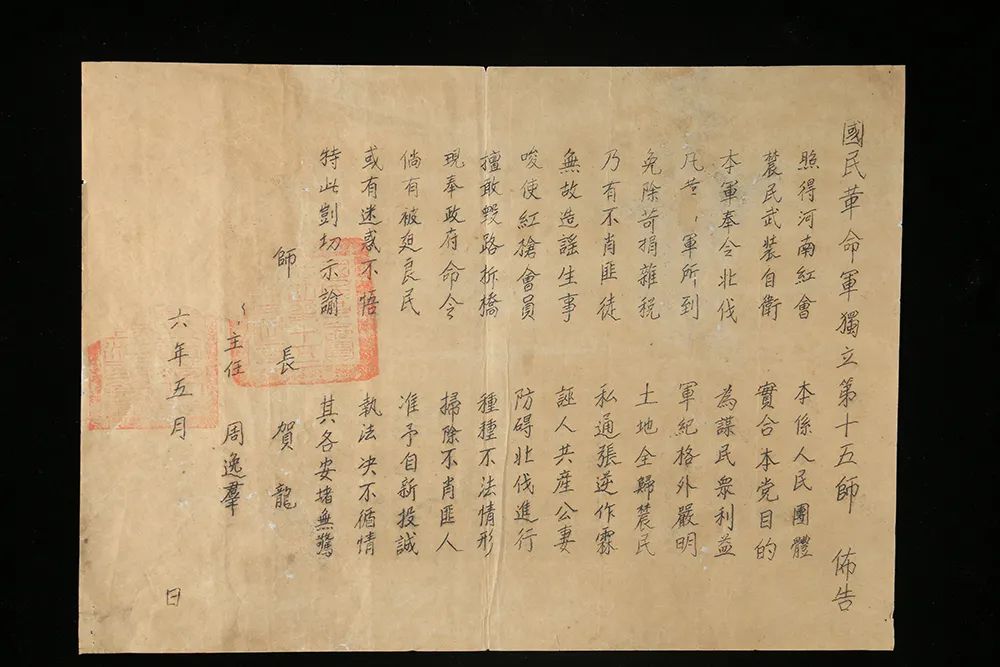 國民革命軍獨立第十五師 佈告
照得河南紅會 本係人民團體
農民武裝自衛 實合本党目的
本軍奉令北伐 為謀民眾利益
凡 軍所到 軍紀格外嚴明
免除苛捐雜稅 土地全歸農民
乃有不肖匪徒 私通張逆作霖
無故造謡生事 誣人共産公妻
唆使紅搶會員 防碍北伐進行
擅敢毀路拆橋 種種不法情形
現奉政府命令 掃除不肖匪人
倘有被廹良民 准予自新投誠
或有迷惑不悟 執法决不循情
特此剴切示諭 其各安堵無驚
師長 賀龍
主任 周逸羣
六年五月 日